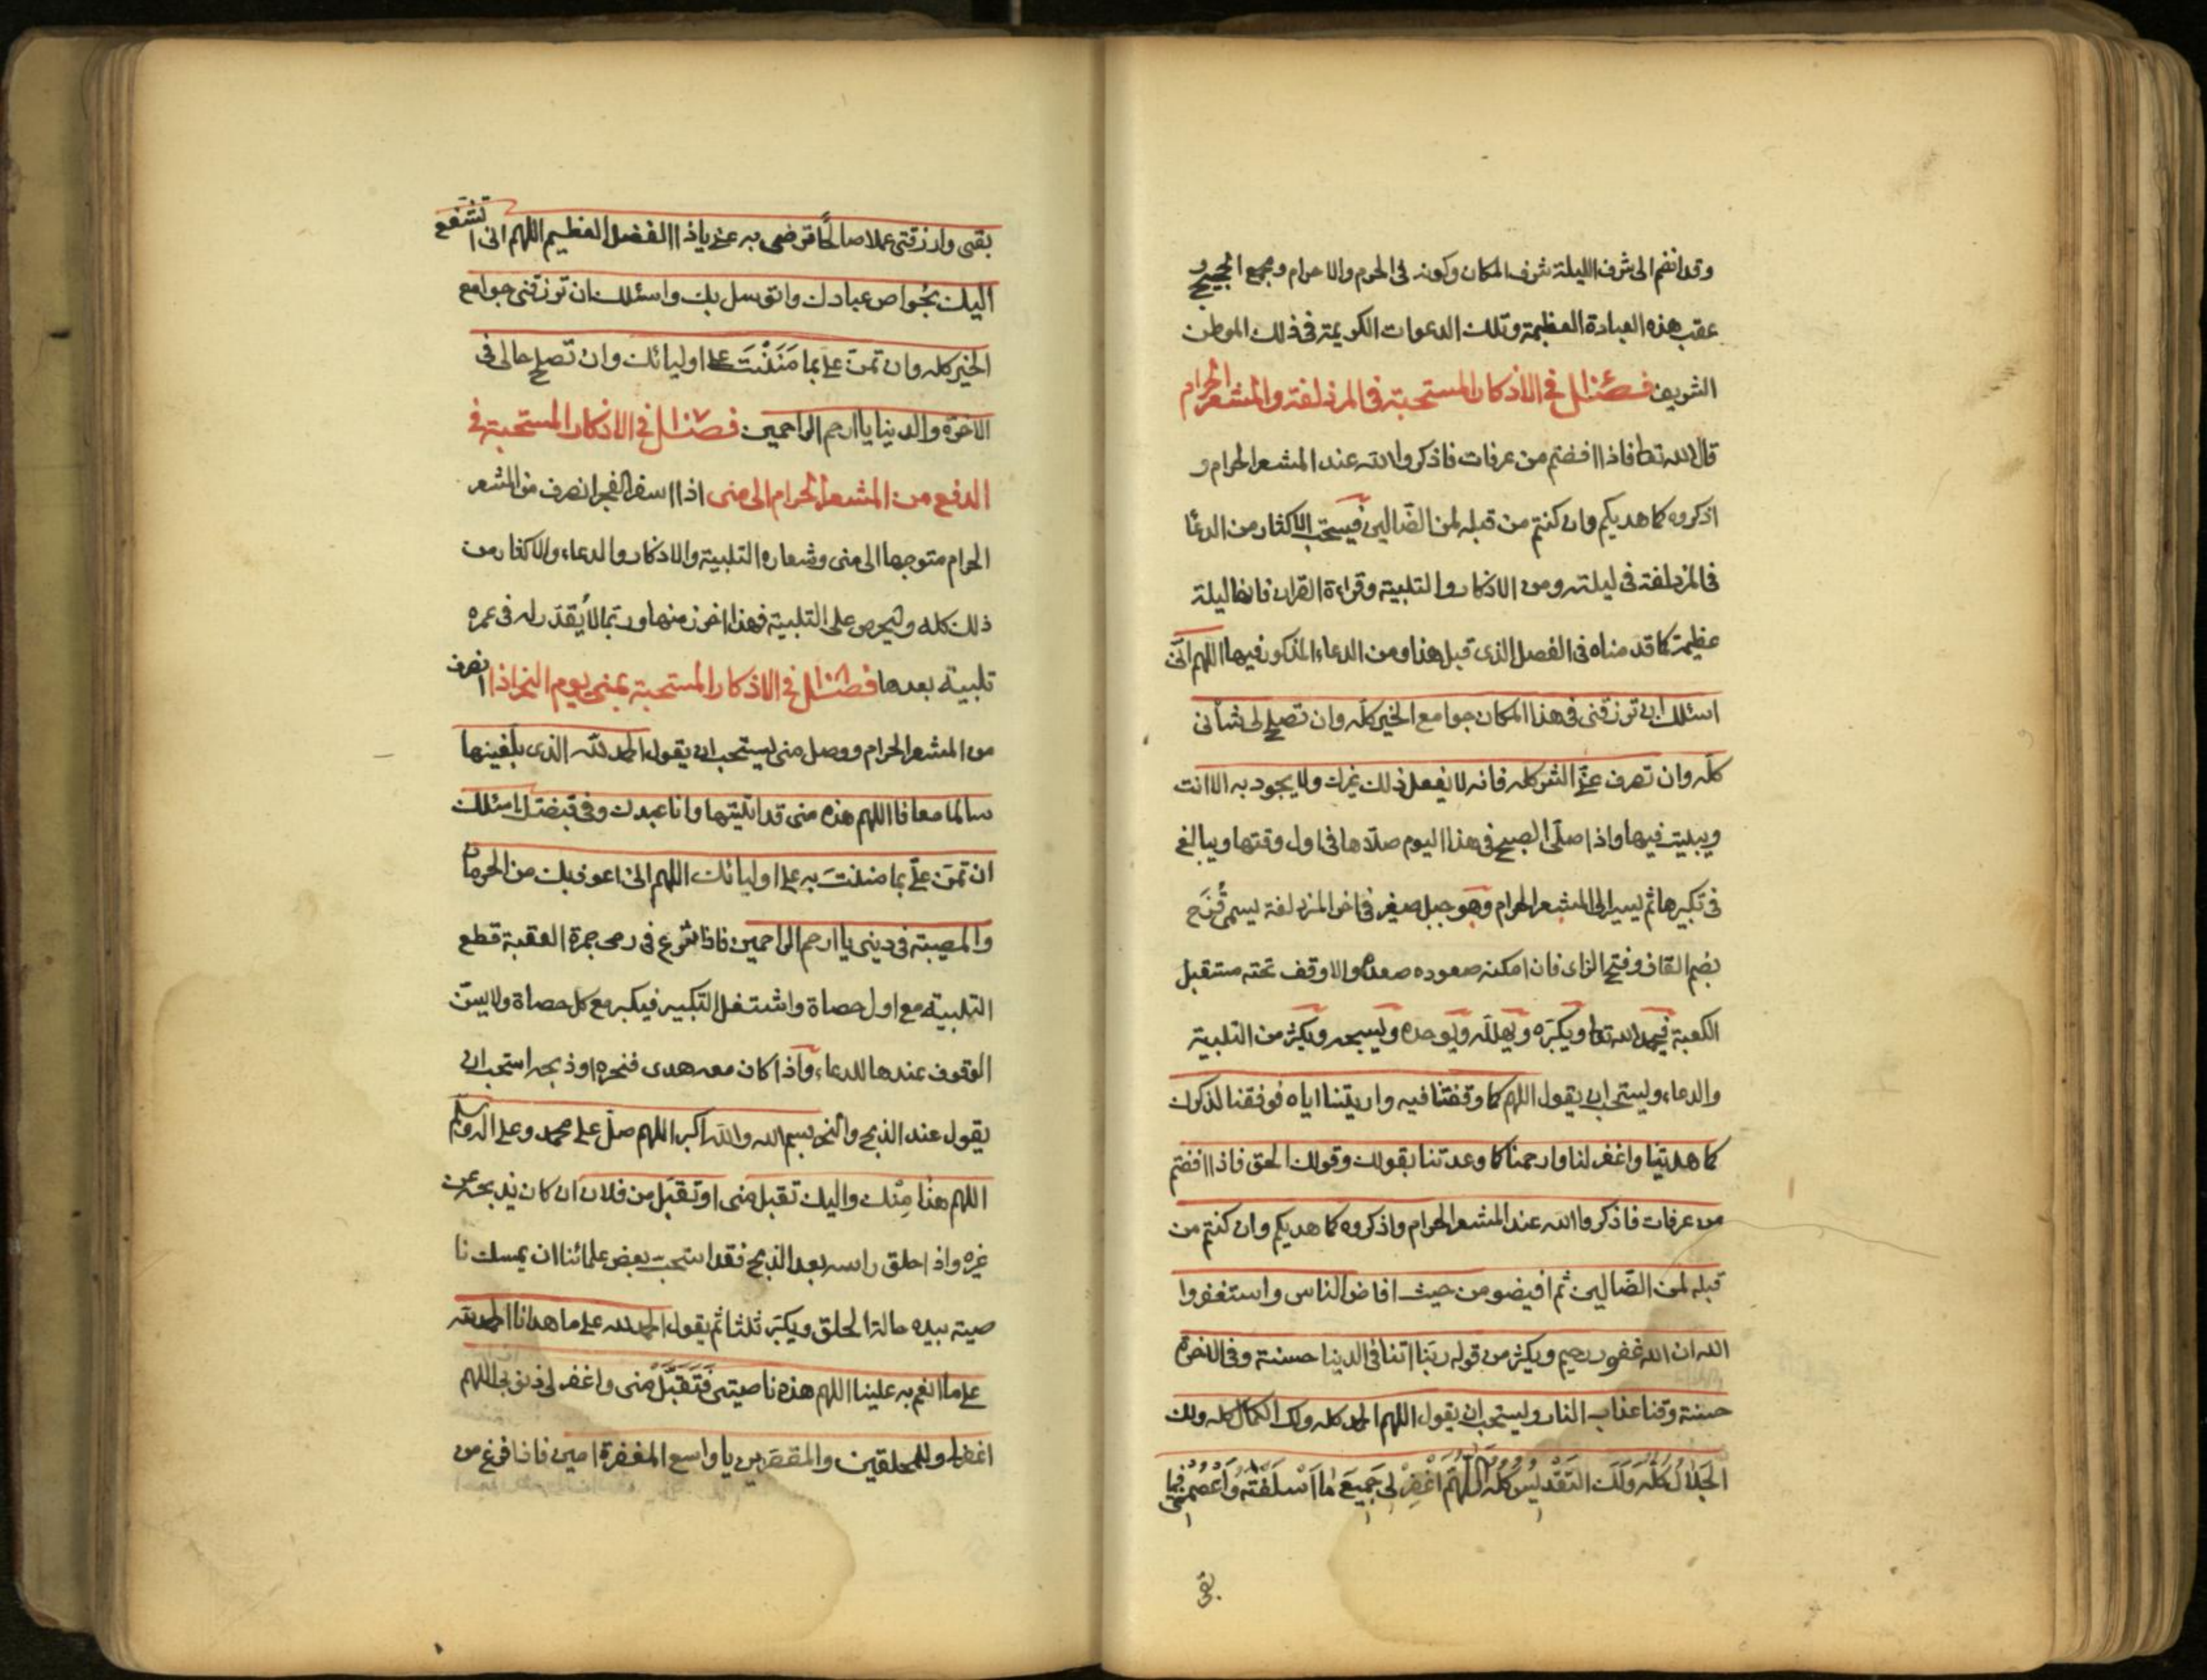 وقد انضم الى شرف الليلة شرف المكان وكونه فى الحرم والاحرام ومجمع الحجيج و
عقب هذه العبادة العظيمة وتلك الدعوات الكريمة فى ذلك الموطن
الشريف فصل فى الاذكار المستحبة فى المزدلفة والمشعر الحرام
قال الله تعا فاذا افضتم من عرفات فاذكروا الله عند المشعر الحرام و
اذكروه كما هديكم وان كنتم من قبله لمن الضّالين فيستحب الاكثار من الدعا
فى المزدلفة فى ليلته ومن الاذكار والتلبية وقراءة القران فانها ليلة
عظيمة كما قدمناه فى الفصل الذى قبل هذا ومن الدعاء المذكور فيها اللهم انّى
اسئلك ان ترزقنى فى هذا المكان جوامع الخير كلّه وان تصلح لى شأنى
كلّه وان تصرف عنّى الشر كله فانه لا يفعل ذلك غيرك ولا يجود به الا انت
ويبيت فيها واذا صلّى الصبح فى هذا اليوم صلّاها فى اول وقتها ويبالغ
فى تكبيرها ثم يسير الى المشعر الحرام وهو جبل صغير فى اخر المزدلفة يسمى قُزَح
بضم القاف وفتح الزاى فان امكنه صعوده صعده والا وقف تحته مستقبل
الكعبة فيحمد الله تعا ويكبّره ويهللّه ويوحده ويسبحه ويكثر من التلبية
والدعاء ويستحب ان يقول اللهم كما وقفتنا فيه واريتنا اياه فوفقنا لذكرك
كما هديتنا واغفر لنا وارحمنا كما وعدتنا بقولك وقولك الحق فاذا افضتم
من عرفات فاذكروا الله عند المشعر الحرام واذكروه كما هديكم وان كنتم من
قبله لمن الضّالين ثم افيضو من حيث افاض الناس واستغفروا
الله ان الله غفور رحيم ويكثر من قوله ربّنا اتنا فى الدنيا حسنة وفى الاخرة
حسنة وقنا عذاب النار ويستحب ان يقول اللهم لك الحمد كله ولك الكمال كله ولك
الجَلَالُ كُلُّهُ وَلَكَ التَّقْدِيسُ كُلُّهُ اللّهُمَّ اغْفِرْ لِى جَمِيعَ مَا اَسْلَفْتُهُ وَاعْصِمْنِى فيما
بقى
بقى وارزقنى عملا صالحًا ترضى به عنى ياذا الفضل العظيم اللهم انى اتشفع
اليك بخواص عبادك واتوسل بك واسئلك ان ترزقنى جوامع
الخير كله وان تمنّ علىّ بما مَنَنْتَ على اوليائك وان تصلح حالى فى
الاخرة والدنيا يا ارحم الراحمين فصل فى الاذكار المستحبة فى
الدفع من المشعر الحرام الى منى اذا اسفر الفجر انصرف من المشعر
الحرام متوجها الى منى وشعاره التلبية والاذكار والدعاء والاكثار من
ذلك كله وليحرص على التلبية فهذا اخر زمنها وربّما لا يُقدّر له فى عمره
تلبية بعدها فصل فى الاذكار المستحبة بمنى يوم النحر اذا انصرف
من المشعر الحرام ووصل منى يستحب ان يقول الحمد للّه الذى بلّغنيها
سالما معافا اللهم هذه منى قد اتيتها وانا عبدك وفى قبضتك اسئلك
ان تمنّ علىّ بما مننتَ به على اوليائك اللهم انى اعوذ بك من الحرمان
والمصيبة فى دينى يا ارحم الراحمين فاذا شرع فى رمى جمرة العقبة قطع
التلبية مع اول حصاة واشتغل التكبير فيكبر مع كل حصاة ولا يسنّ
الوقوف عندها للدعاء واذا كان معه هدى فنحره او ذبحه استحب ان
يقول عند الذبح والنحر بسم الله والله اكبر اللهم صلّ على محمد وعلى اله وسلم
اللهم هذا مِنْك واليك تقبل منى او تقبّل من فلان ان كان يذبحه عن
غيره واذا حلق راسه بعد الذبح فقد استحب بعض علمائنا ان يمسك نا
صيته بيده حالة الحلق ويكبّر ثلثا ثم يقول الحمد لله على ما هدانا الحمد لله
على ما انعم به علينا اللهم هذه ناصيتى فَتَقَبَّلْ منى واغفر لى ذنوبى اللهم
اغفر لى وللمحلقين والمقصّرين يا واسع المغفرة امين فاذا فرغ من